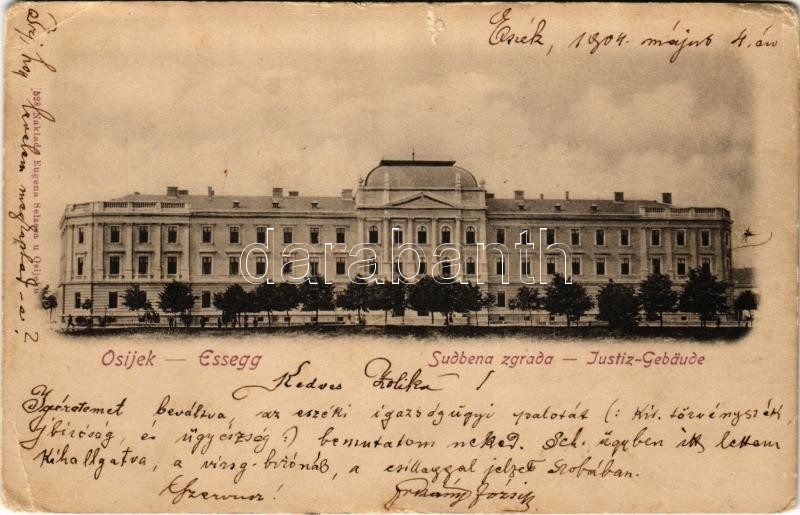 Eszék, 1904. május 4.-én
528 Naklada Eugena Selzera u Osijeku
darabanth
Osijek — Essegg
Sudbena zgrada — Justiz-Gebäude
Kedves Zolika!
Igéretemet beváltva, az eszéki igazságügyi palotát (: Kir. törvényszék,
Jbiróság, és ügyészség :) bemutatom neked. Sch. ügyben itt lettem
kihallgatva, a vizsg-birónál, a csillaggal jelzet szobában.
Szervusz! Józsi